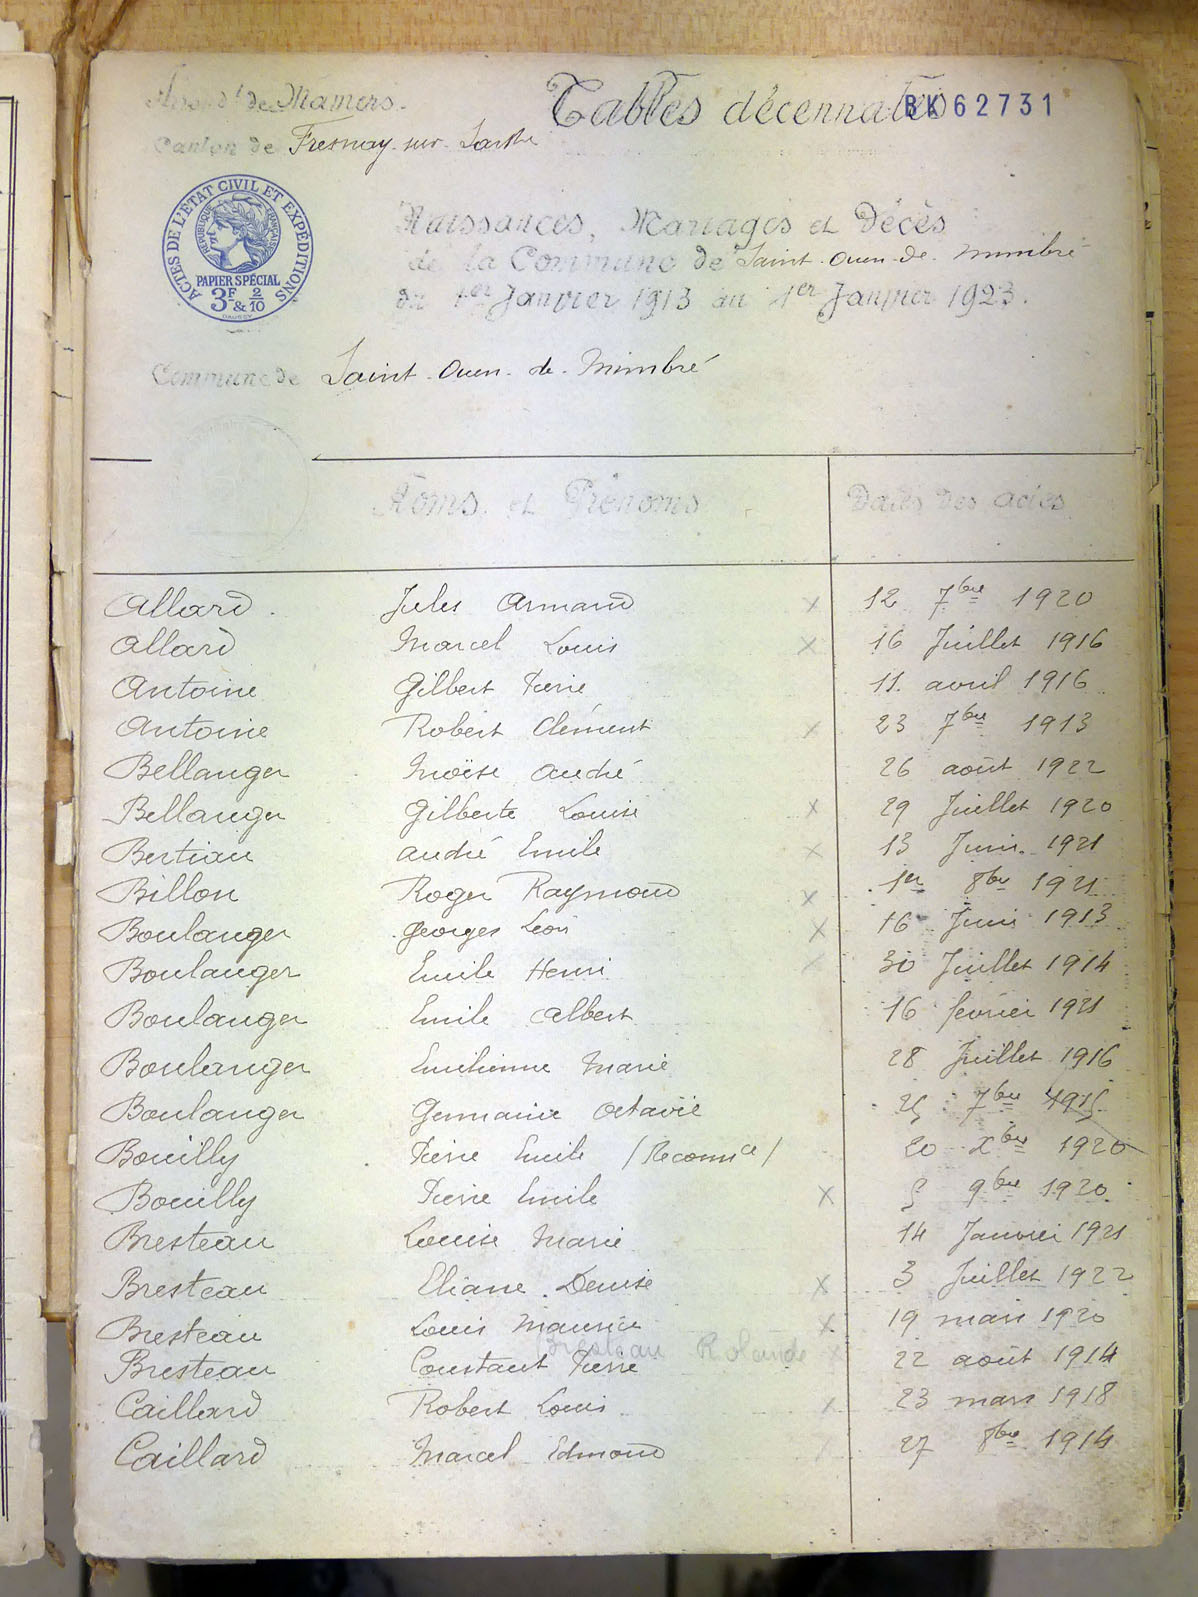 Arrond.t de Mamers.
Tables décennales
BK62731
Canton de Fresnay-sur-Sarthe
ACTES DE L'ETAT CIVIL ET EXPÉDITIONS
RÉPUBLIQUE FRANÇAISE
PAPIER SPÉCIAL
3F & 2/10
Naissances, Mariages et Décès
de la Commune de Saint-Ouen-de-Mimbré
du 1er Janvier 1913 au 1er Janvier 1923.
Commune de Saint-Ouen-de-Mimbré
Noms et Prénoms Dates des actes
Allard. Jules Armand x 12 7bre 1920
Allard Marcel Louis x 16 Juillet 1916
Antoine Gilbert Pierre 11. avril 1916
Antoine Robert Clément x 23 7bre 1913
Bellanger Moïse André 26 août 1922
Bellanger Gilberte Louise x 29 Juillet 1920
Bertiau André Emile x 13 Juin. 1921
Billon Roger Raymond x 1er 8bre 1921
Boulanger Georges Léon x 16 Juin 1913
Boulanger Emile Henri 30 Juillet 1914
Boulanger Emile Albert 16 février 1921
Boulanger Emilienne Marie 28 Juillet 1916
Boulanger Germaine Octavie 25 7bre 1915
Bouilly Pierre Emile /Reconnce/ 20 Xbre 1920
Bouilly Pierre Emile x 5 9bre 1920
Bresteau Louise Marie 14 Janvier 1921
Bresteau Eliane Denise x 3 Juillet 1922
Bresteau Louis Maurice x 19 mars 1920
Bresteau Rolande x
Bresteau Constant Pierre 22 août 1914
Caillard Robert Louis 23 mars 1918
Caillard Marcel Edmond 27 8bre 1914